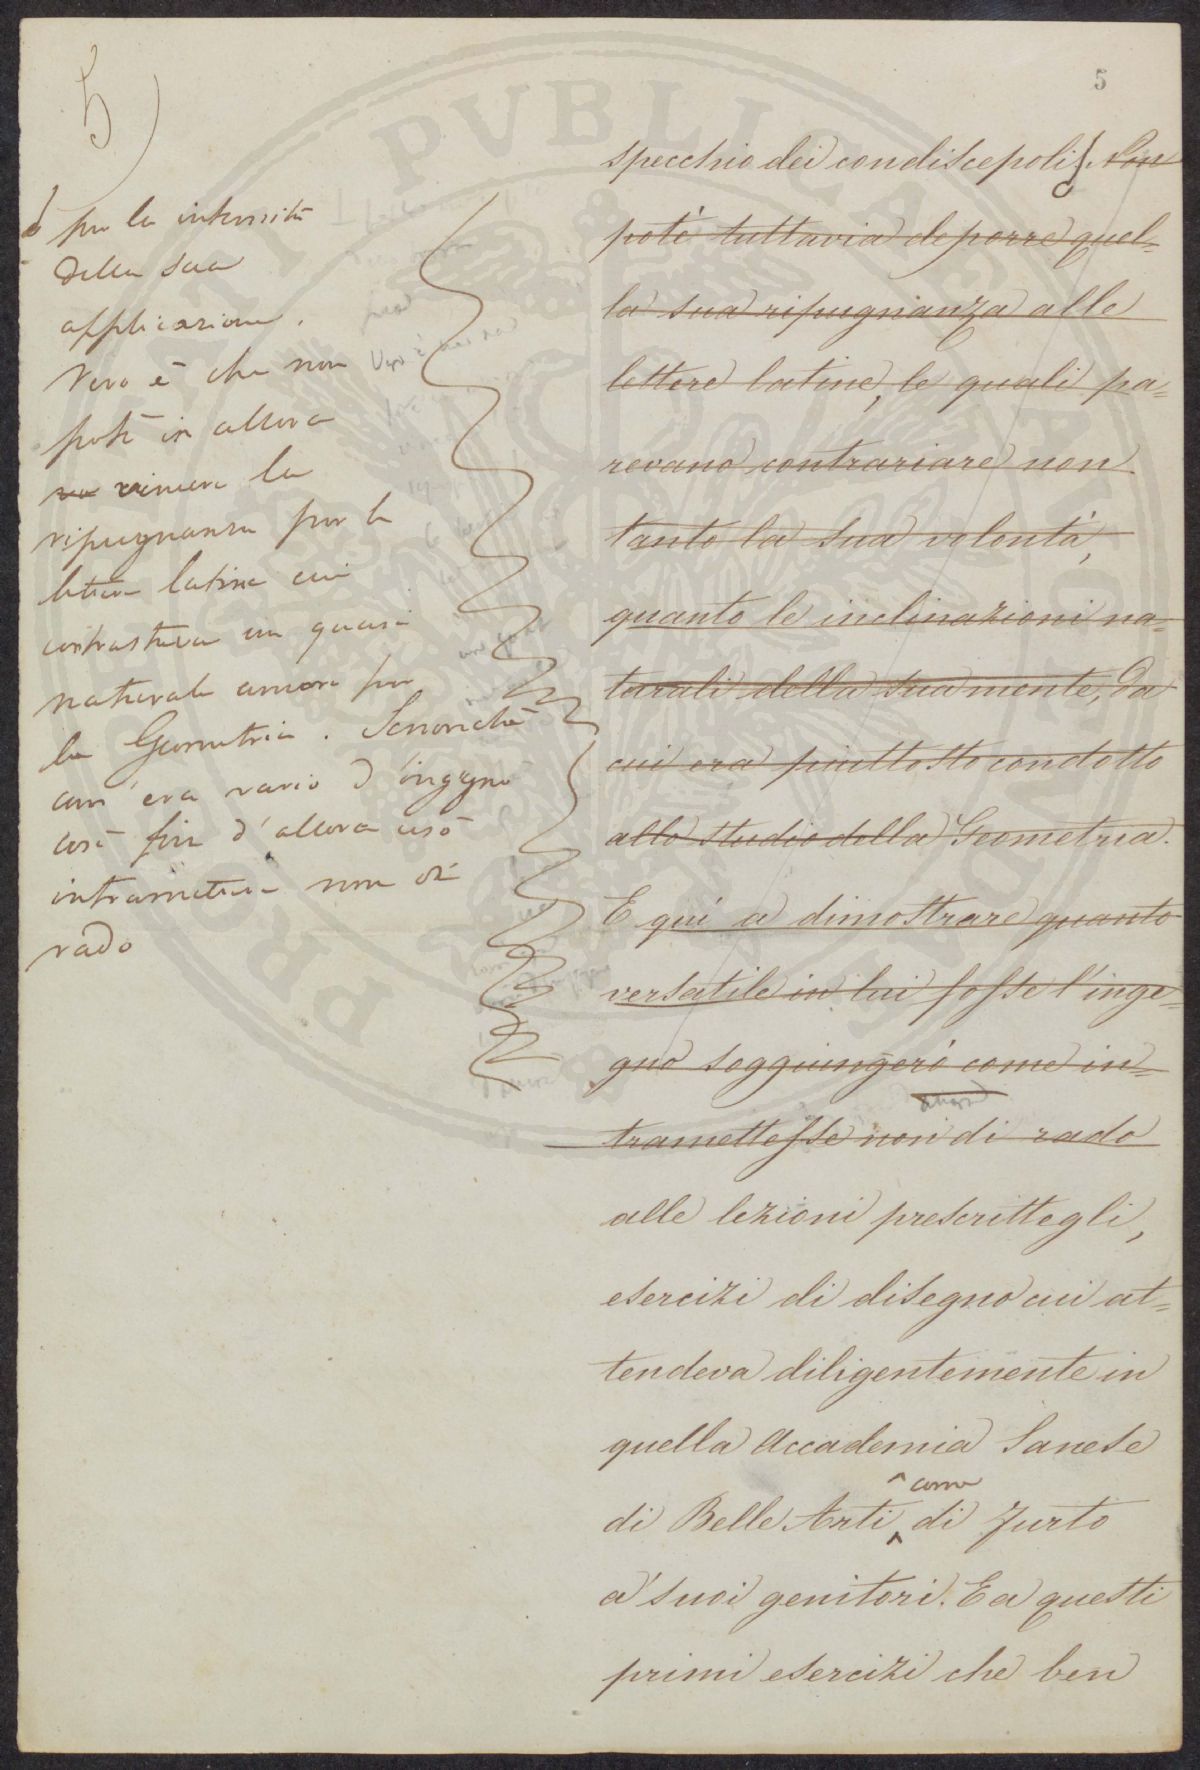 5)
5
per la intensità
della sua
applicazione.
Vero è che non
potè in allora
vincere la
ripugnanza per le
lettere latine cui
contrastava un quasi
naturale amore per
la Geometria. Sennonchè
com'era vario d'ingegno
così fin d'allora usò
intramettere non di
rado
specchio dei condiscepoli. Non
potè tuttavia deporre quel=
la sua ripugnanza alle
lettere latine, le quali pa=
revano contrariare non
tanto la sua volontà,
quanto le inclinazioni na=
turali della sua mente, da
cui era piuttosto condotto
allo studio della Geometria.
E qui a dimostrare quanto
versatile in lui fosse l'inge=
gno soggiungerò come in=
tramettesse non di rado
alle lezioni prescrittegli,
esercizi di disegno cui at=
tendeva diligentemente in
quella Accademia Sanese
come
di Belle Arti, di furto
a' suoi genitori. E a questi
primi esercizi che ben
PVBLICAE